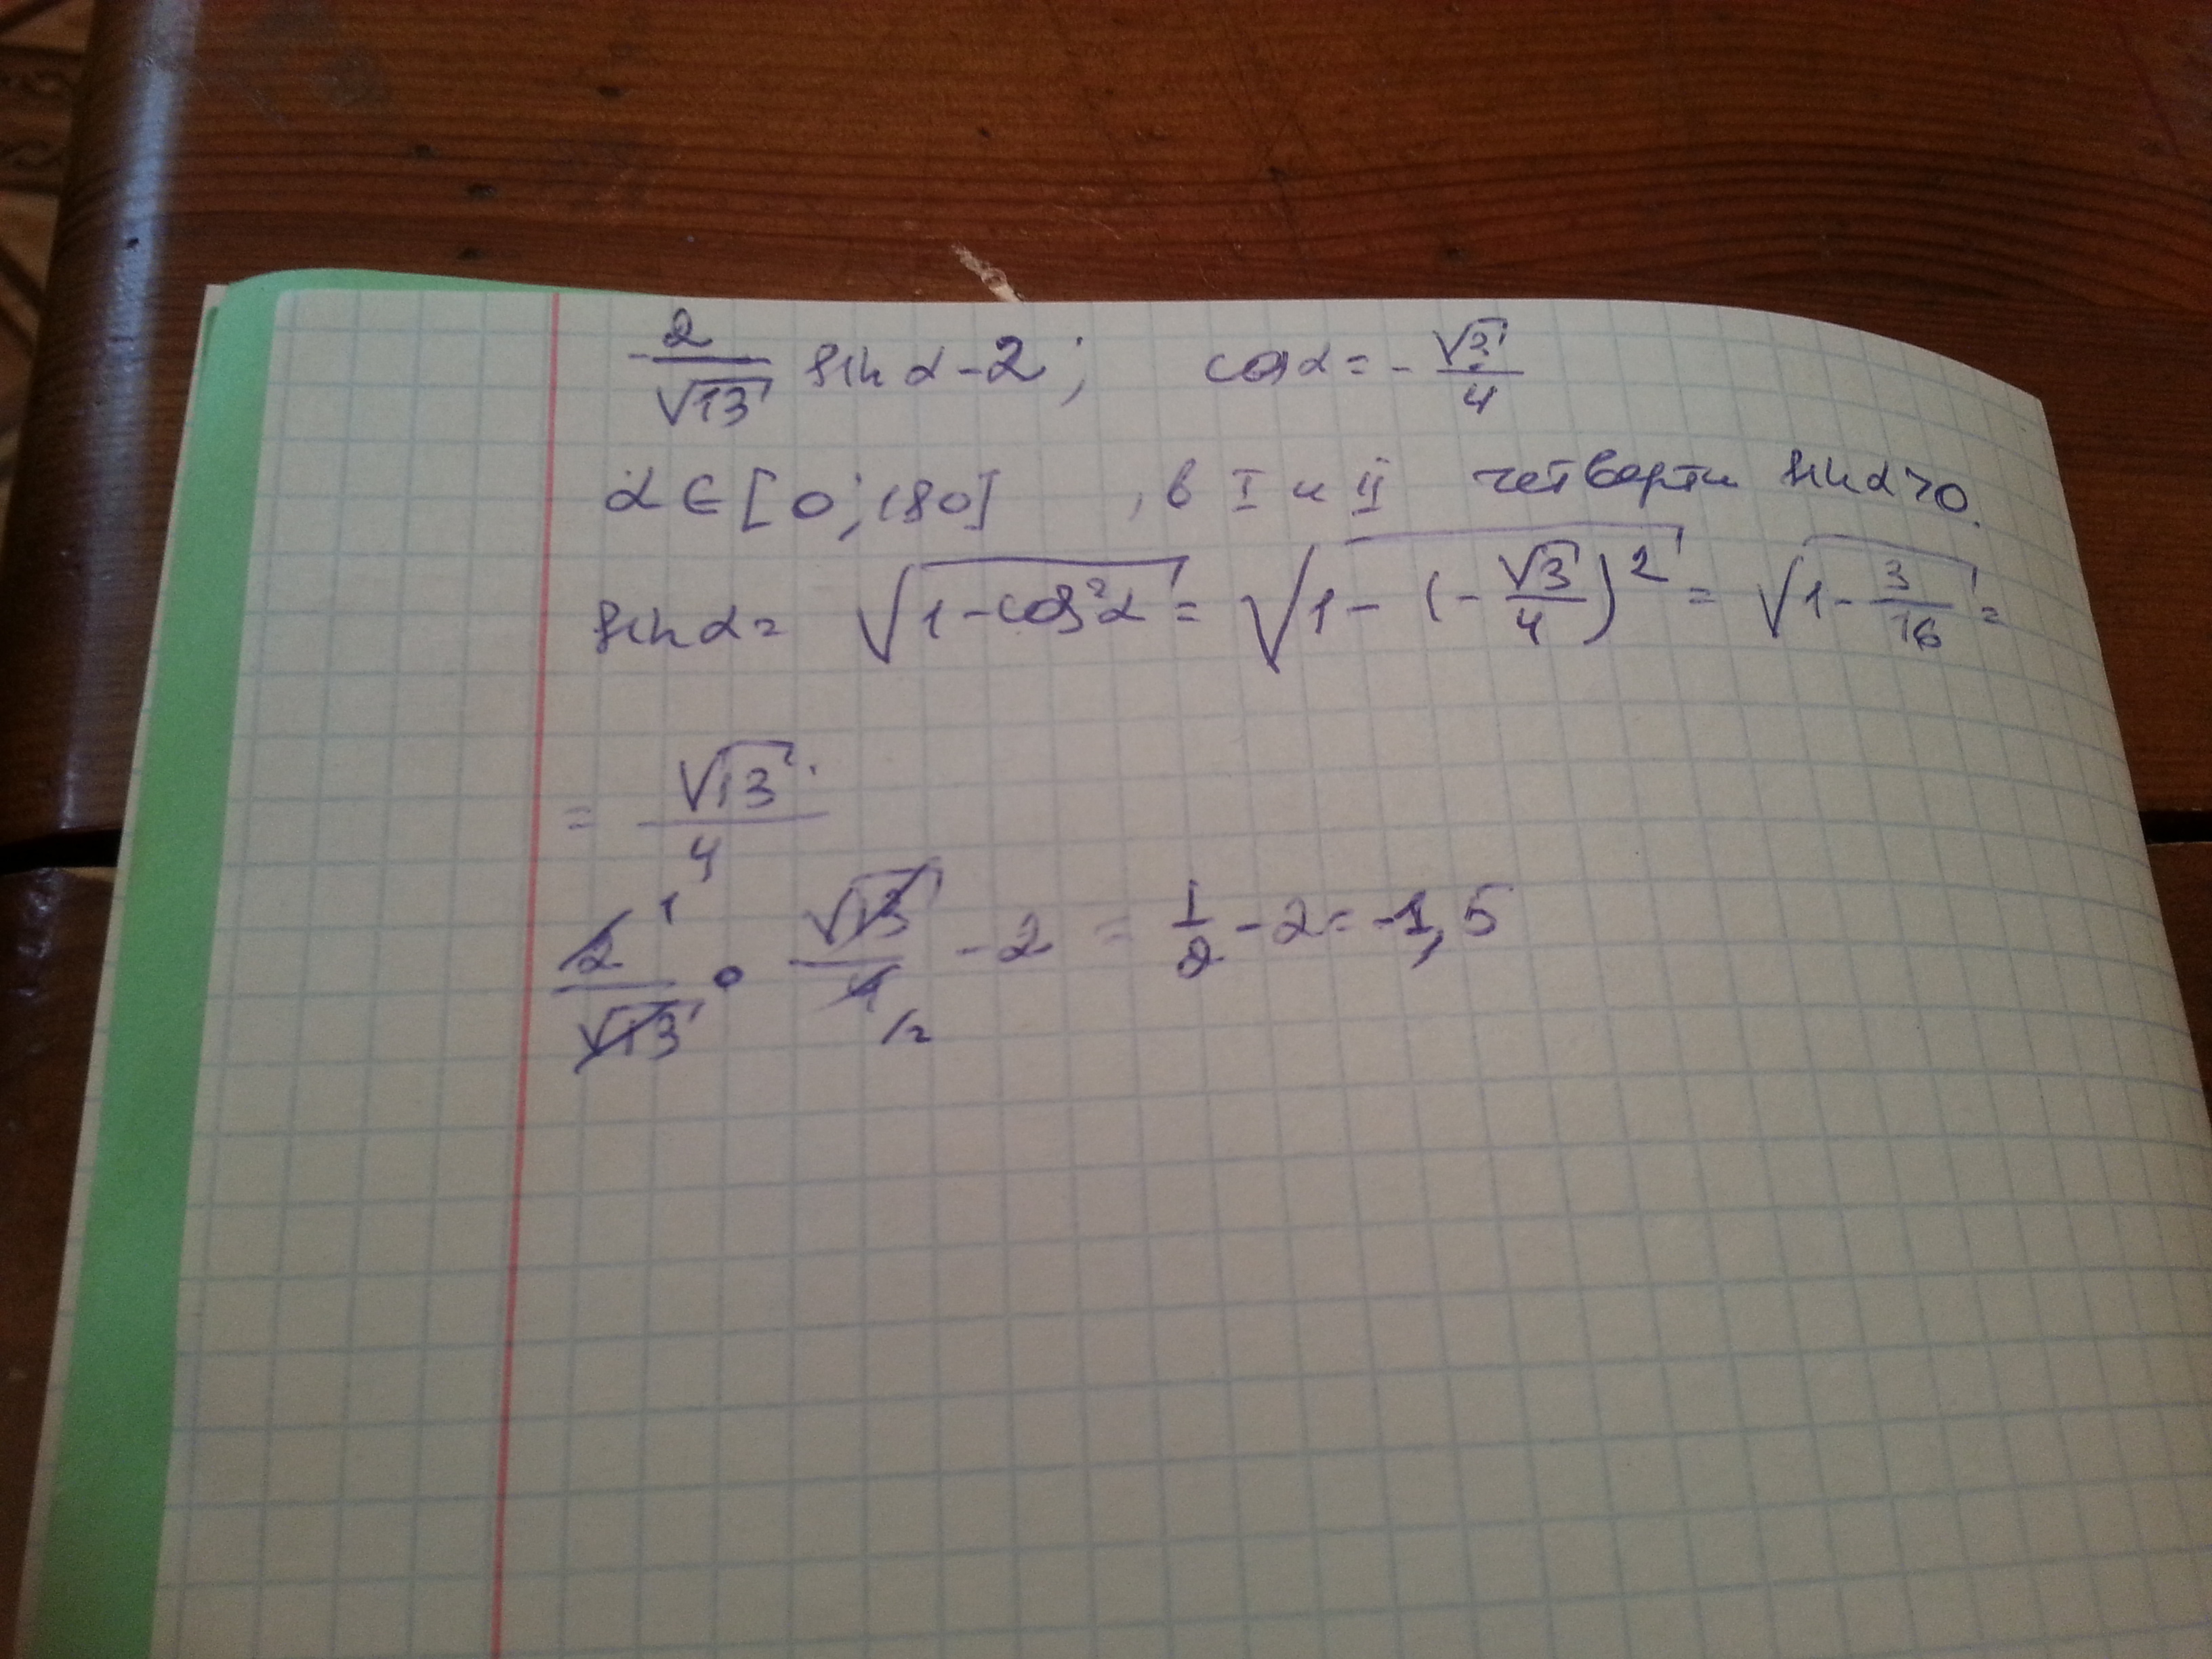 2/√13 sin α - 2; cos α = - √3/4
α ∈ [0; 180] , в I и II четверти sin α > 0.
sin α = √(1 - cos²α) = √(1 - (-√3/4)²) = √(1 - 3/16) =
= √13/4
2/√13 · √13/4 - 2 = 1/2 - 2 = -1,5